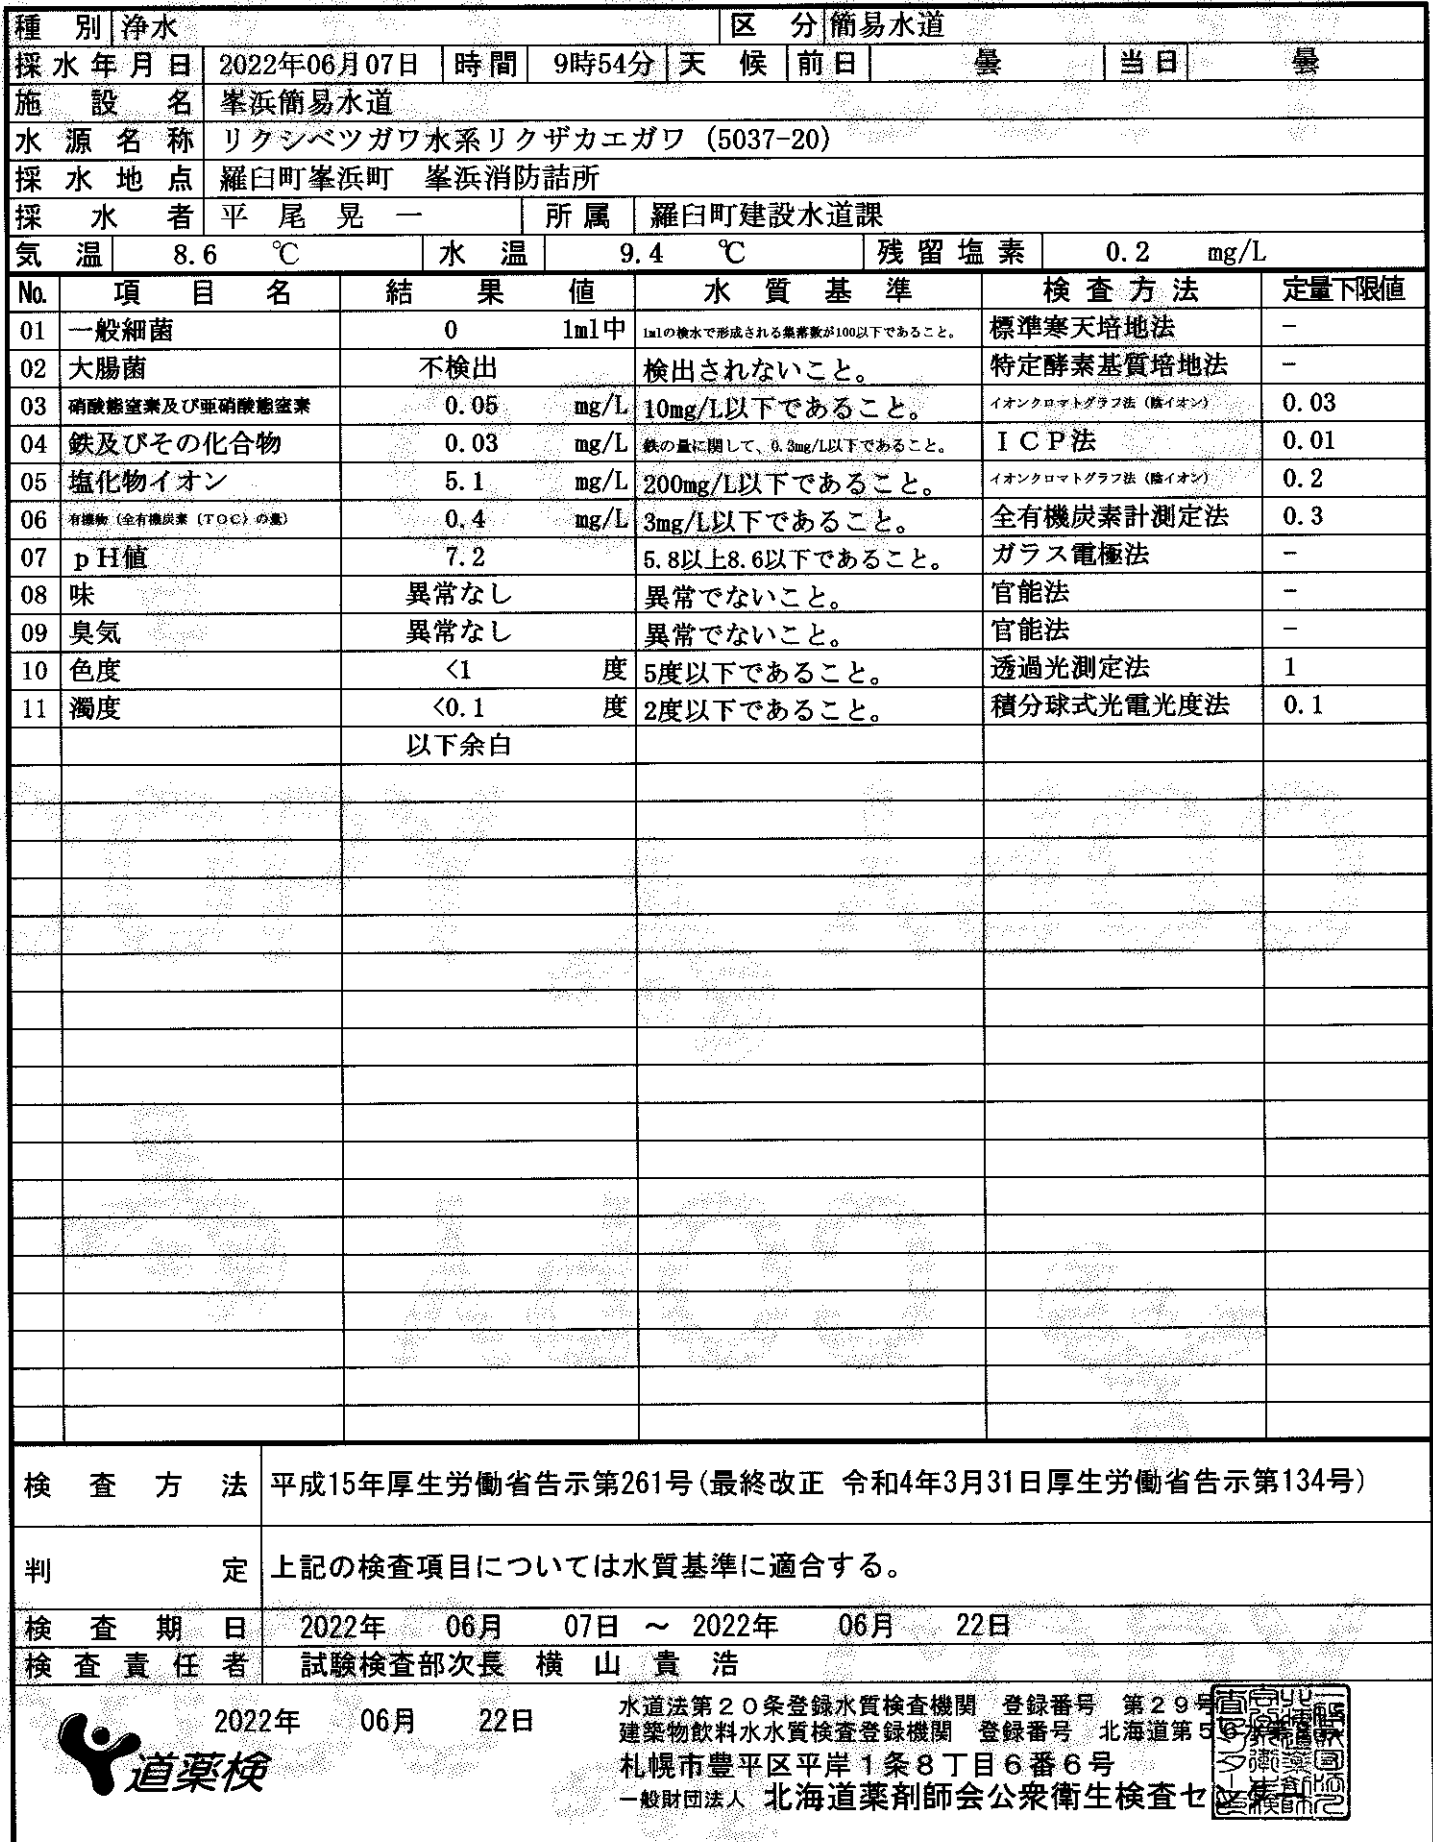 種別 浄水 区分 簡易水道
採水年月日 2022年06月07日 時間 9時54分 天候 前日 曇 当日 曇
施設名 峯浜簡易水道
水源名称 リクシベツガワ水系リクザカエガワ (5037-20)
採水地点 羅臼町峯浜町 峯浜消防詰所
採水者 平尾晃一 所属 羅臼町建設水道課
気温 8.6 ℃ 水温 9.4 ℃ 残留塩素 0.2 mg/L
No. 項目名 結果値 水質基準 検査方法 定量下限値
01 一般細菌 0 1ml中 1mlの検水で形成される集落数が100以下であること。 標準寒天培地法 －
02 大腸菌 不検出 検出されないこと。 特定酵素基質培地法 －
03 硝酸態窒素及び亜硝酸態窒素 0.05 mg/L 10mg/L以下であること。 イオンクロマトグラフ法（陰イオン） 0.03
04 鉄及びその化合物 0.03 mg/L 鉄の量に関して、0.3mg/L以下であること。 ＩＣＰ法 0.01
05 塩化物イオン 5.1 mg/L 200mg/L以下であること。 イオンクロマトグラフ法（陰イオン） 0.2
06 有機物（全有機炭素（ＴＯＣ）の量） 0.4 mg/L 3mg/L以下であること。 全有機炭素計測定法 0.3
07 ｐＨ値 7.2 5.8以上8.6以下であること。 ガラス電極法 －
08 味 異常なし 異常でないこと。 官能法 －
09 臭気 異常なし 異常でないこと。 官能法 －
10 色度 <1 度 5度以下であること。 透過光測定法 1
11 濁度 <0.1 度 2度以下であること。 積分球式光電光度法 0.1
以下余白
検査方法 平成15年厚生労働省告示第261号(最終改正 令和4年3月31日厚生労働省告示第134号)
判定 上記の検査項目については水質基準に適合する。
検査期日 2022年 06月 07日 ～ 2022年 06月 22日
検査責任者 試験検査部次長 横山貴浩
2022年 06月 22日
道薬検
水道法第２０条登録水質検査機関 登録番号 第２９号
建築物飲料水水質検査登録機関 登録番号 北海道第５
札幌市豊平区平岸１条８丁目６番６号
一般財団法人 北海道薬剤師会公衆衛生検査センター